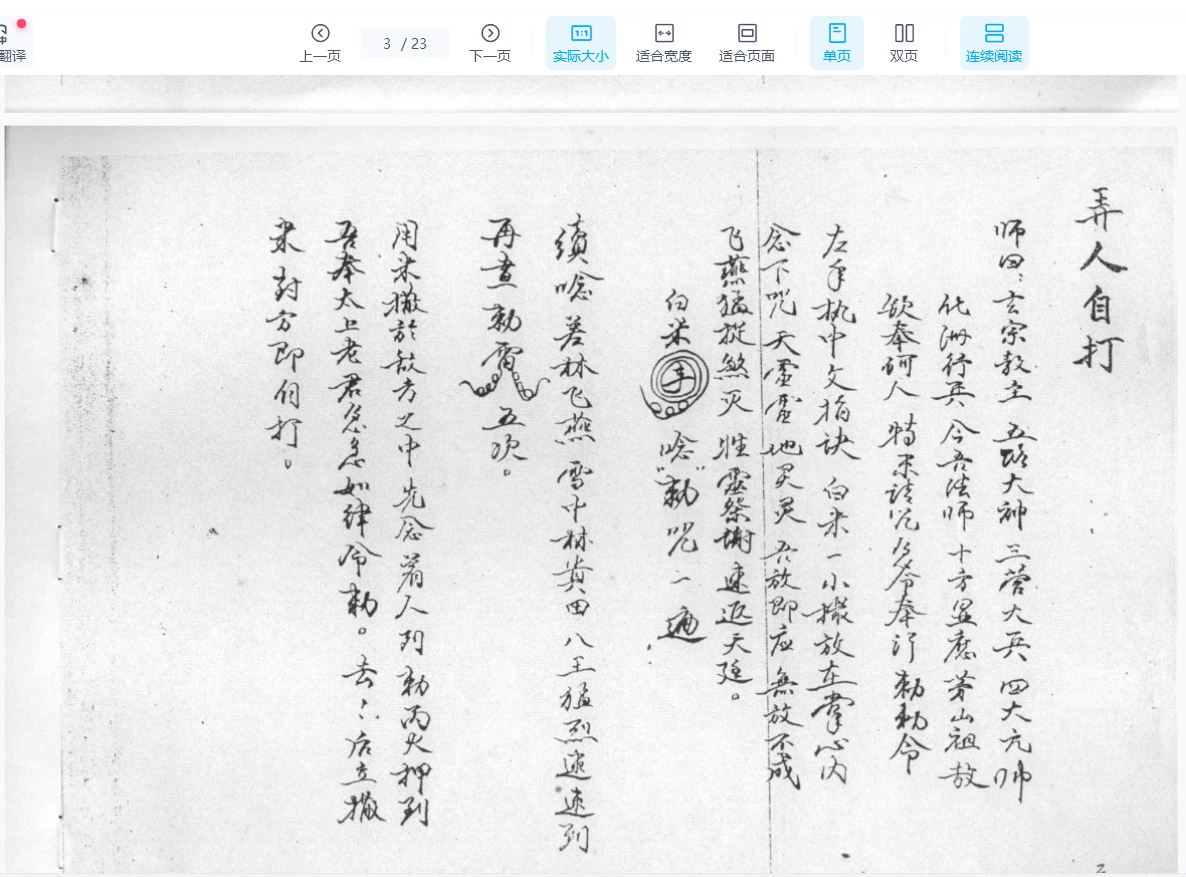 翻译
上一页
3 / 23
下一页
1:1
实际大小
适合宽度
适合页面
单页
双页
连续阅读
弄人自打
师曰：玄宗教主 五路大神 三营大兵 四大元帅
化洲行兵 今吾法师 十方显应 茅山祖教
欲奉 人 特来请 令奉行 勅勅令
左手执中文指诀 白米一小撮放左掌心内
念下咒 天灵灵 地灵灵 吾放即应 無放不成
飞燕猛捉煞灭 牲靈祭谢 速返天廷。
白米 唸“勅”咒一遍
續唸 差林飞燕 雪中林 黄田八王 猛烈速速到
再画勅雷 五次。
用米撒於敌方之中 先念着人列 勅丙火押到
吾奉太上老君急急如律令勅。去 后立撒
米 对方即自打。
2